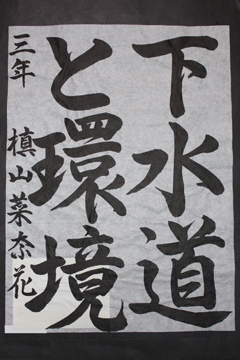 下水道
と環境
三年 槙山菜奈花